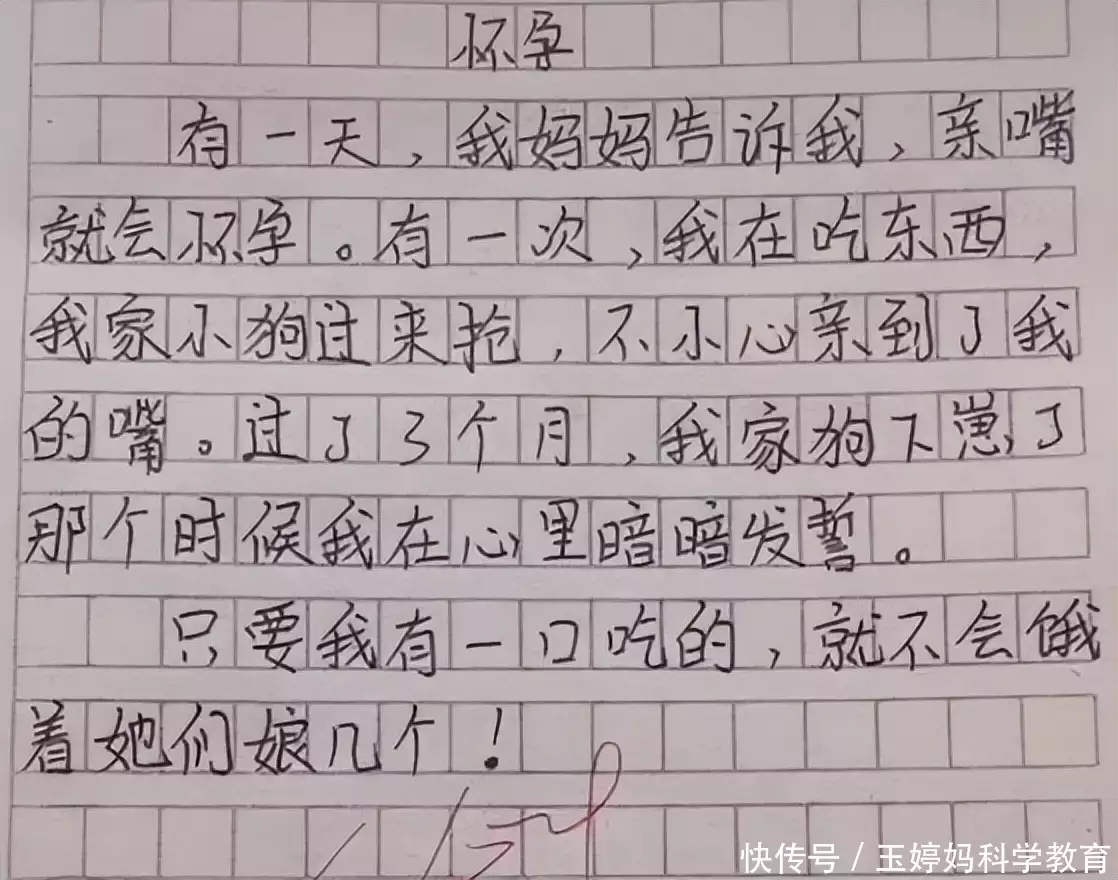 怀孕
有一天，我妈妈告诉我，亲嘴
就会怀孕。有一次，我在吃东西，
我家小狗过来抢，不小心亲到了我
的嘴。过了3个月，我家狗下崽了
那个时候我在心里暗暗发誓。
只要我有一口吃的，就不会饿
着她们娘几个！
快传号 / 玉婷妈科学教育